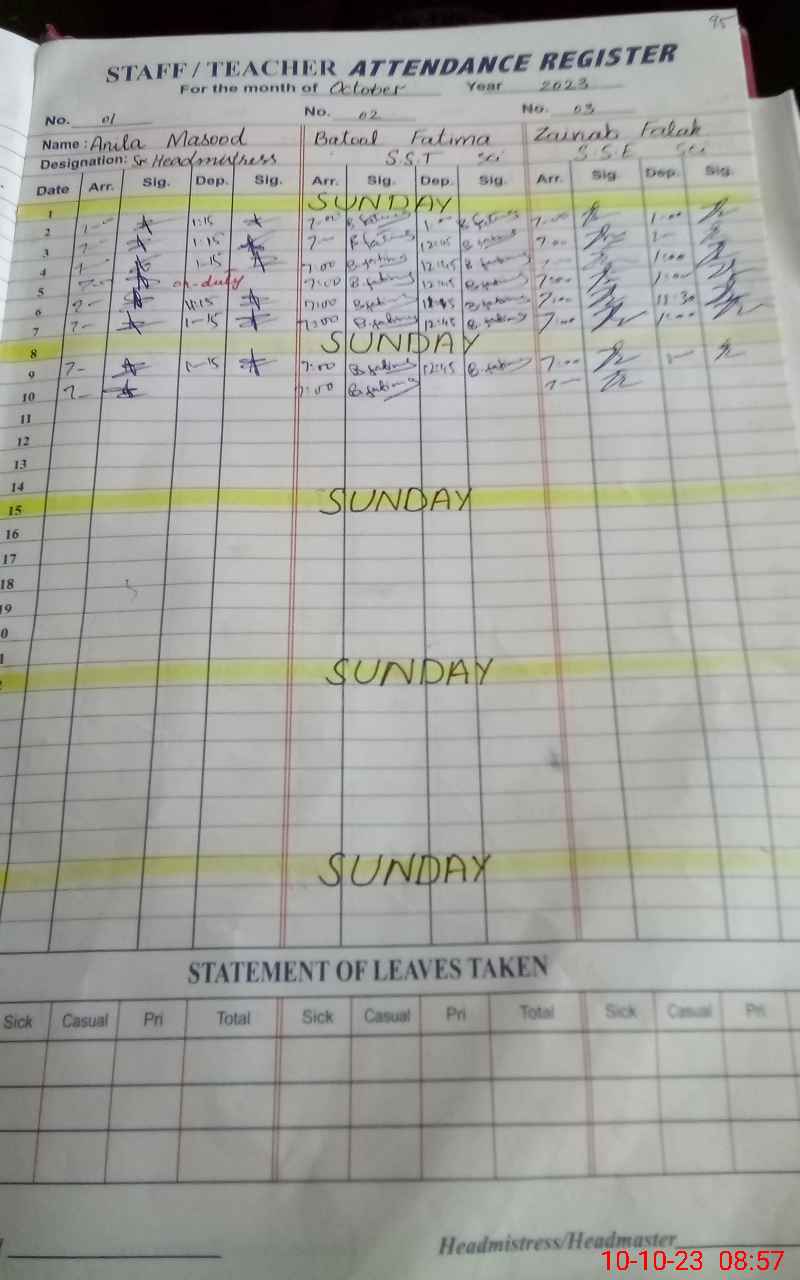 95
STAFF / TEACHER ATTENDANCE REGISTER
For the month of October Year 2023
No. 01 No. 02 No. 03
Name : Anila Masood Batool Fatima Zainab Falak
Designation: Sr Headmistress S.S.T Sci S.S.E Sci
Date Arr. Sig. Dep. Sig. Arr. Sig. Dep. Sig. Arr. Sig. Dep. Sig.
1 SUNDAY
2 1:15 7:00 B.fatima 1:00 B.fatima 7:00 1:00
3 7- 1:15 7- B.fatima 12:45 B.fatima 7:00 1-
4 1-15 7:00 B.fatima 12:45 B.fatima 1:00
5 7- on-duty 7:00 B.fatima 12:45 B.fatima 7:00 1:00
6 7- 11:15 7:00 B.fatima B.fatima 7:00 11:30
7 7- 1-15 7:00 B.fatima 12:45 B.fatima 7:00 1:00
8 SUNDAY
9 7- 1-15 7:00 B.fatima 12:45 B.fatima 7:00
10 7- 7:00 B.fatima 7-
11
12
13
14
15 SUNDAY
16
17
18
19
0
1
SUNDAY
SUNDAY
STATEMENT OF LEAVES TAKEN
Sick Casual Pri Total Sick Casual Pri Total Sick Casual Pri
Headmistress/Headmaster
10-10-23 08:57